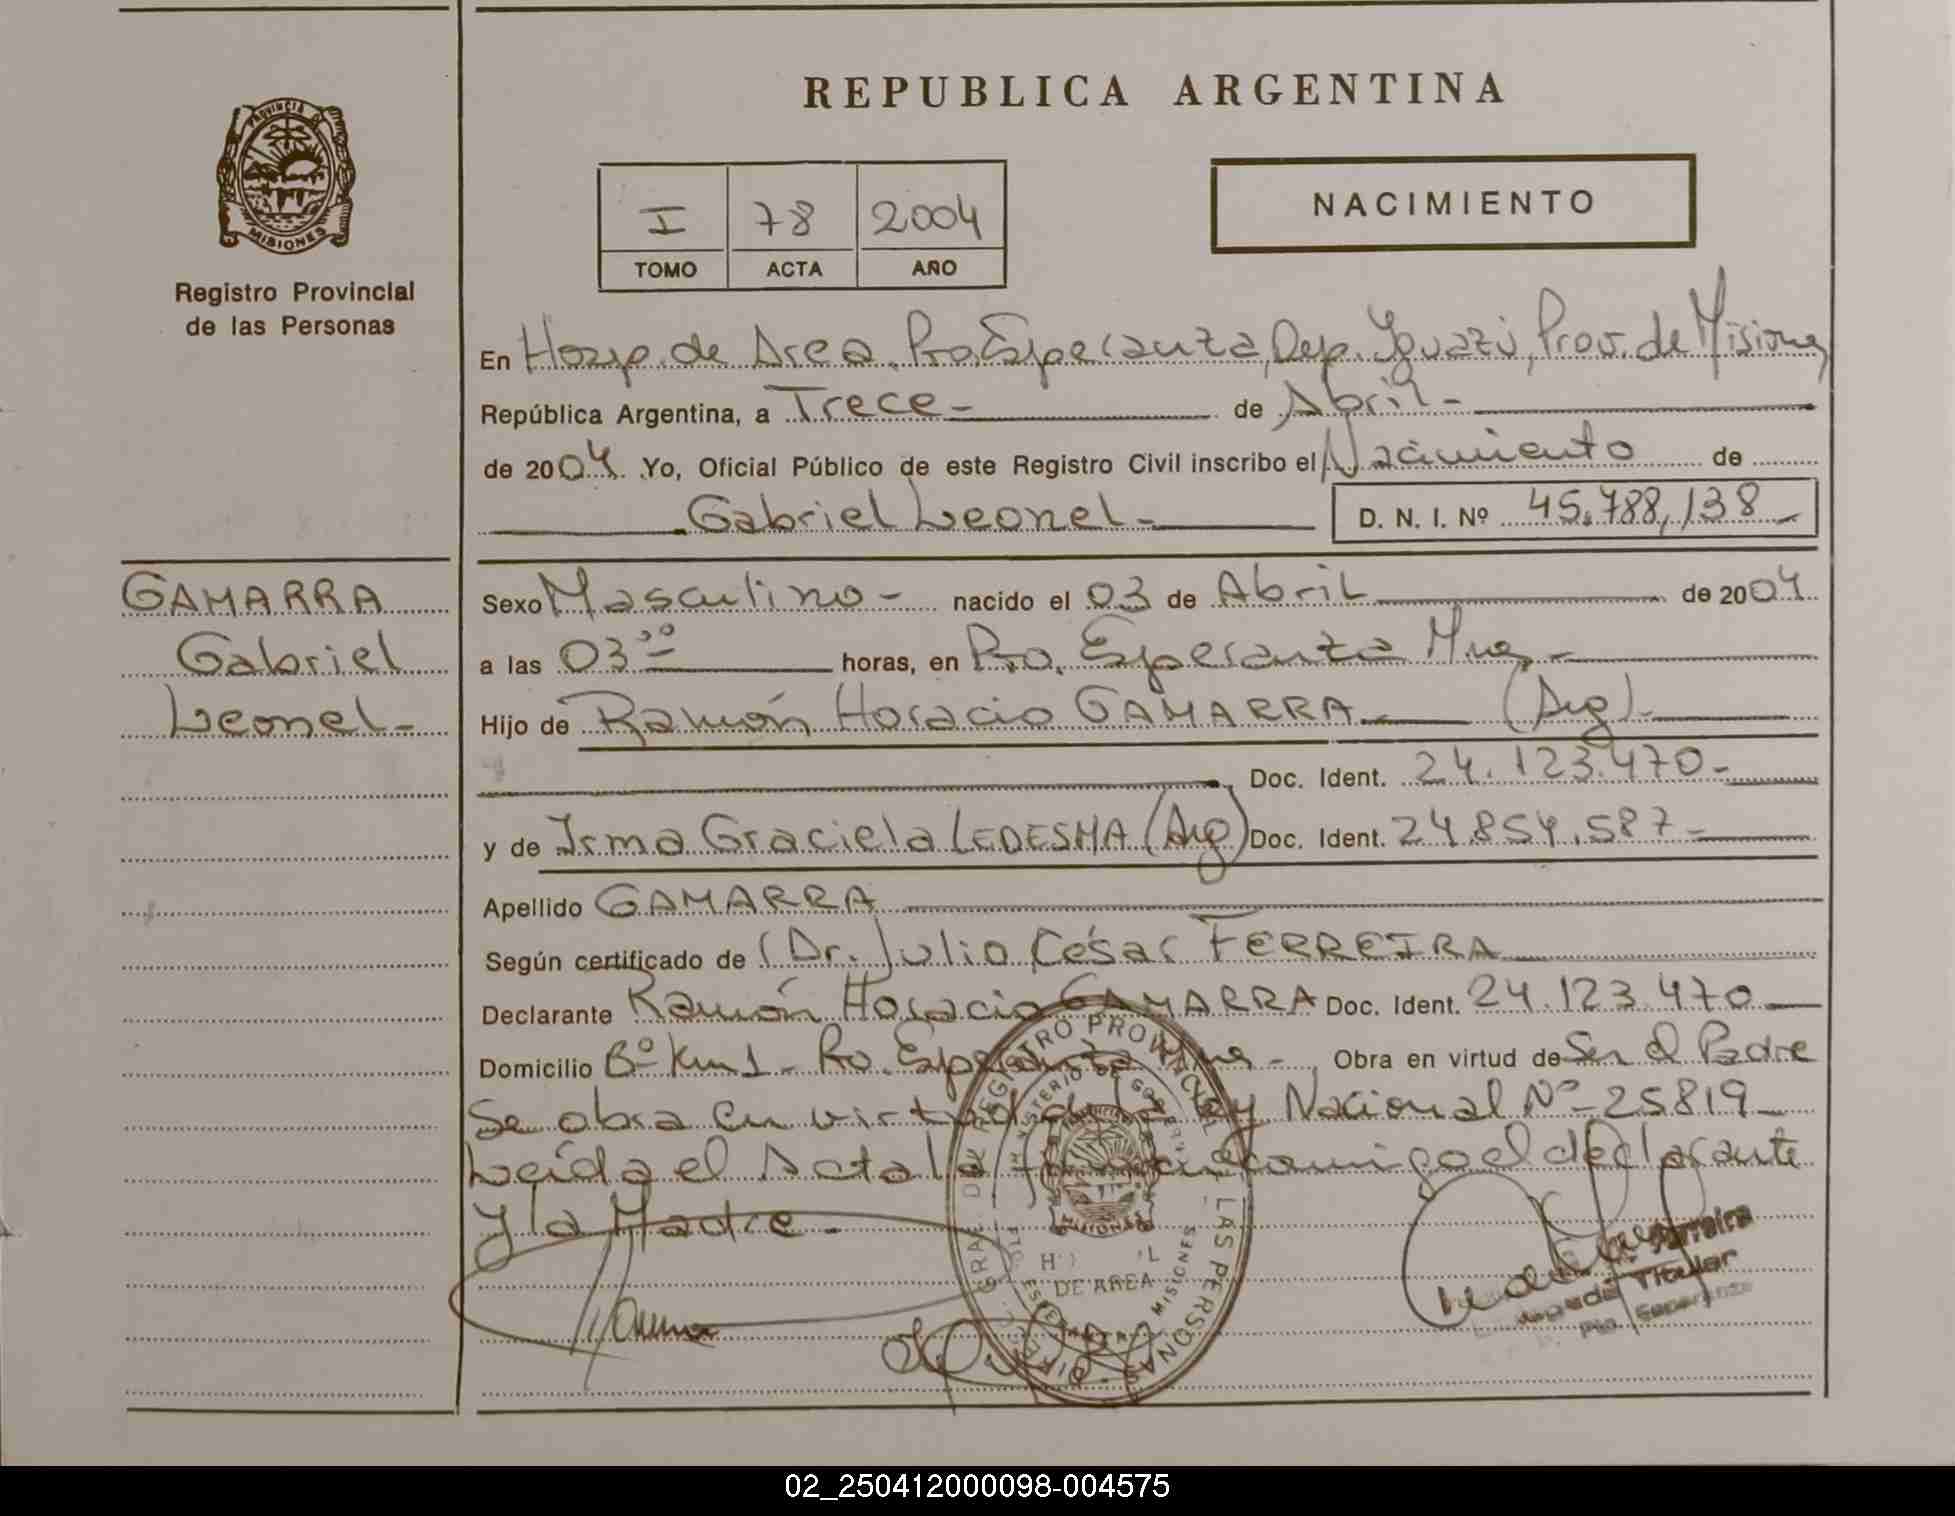 REPUBLICA ARGENTINA
PROVINCIA DE
MISIONES
Registro Provincial
de las Personas
I 78 2004
TOMO ACTA AÑO
NACIMIENTO
En Hosp. de Area. Pto. Esperanza, Dep. Iguazú, Prov. de Misiones
República Argentina, a Trece- de Abril-
de 2004. Yo, Oficial Público de este Registro Civil inscribo el Nacimiento de
Gabriel Leonel- D. N. I. Nº 45.788,138-
GAMARRA
Gabriel
Leonel-
Sexo Masculino- nacido el 03 de Abril de 2004
a las 03 00 horas, en Pto. Esperanza Mnes-
Hijo de Ramón Horacio GAMARRA (Arg)-
Doc. Ident. 24.123.470-
y de Irma Graciela LEDESMA (Arg) Doc. Ident. 24.854.587-
Apellido GAMARRA
Según certificado de (Dr. Julio César FERREIRA
Declarante Ramón Horacio GAMARRA Doc. Ident. 24.123.470
Domicilio Bº Km 1- Pto. Esperanza Mnes- Obra en virtud de Ser el Padre
Se obra en virtud de la Ley Nacional Nº-25819-
Leída el Acta la conmigo el declarante
y la Madre-
REGISTRO PROVINCIAL DE LAS PERSONAS
MINISTERIO DE GOBIERNO
MISIONES
DE AREA
MISIONES
Ferreira
Titular
Pto. Esperanza
02_250412000098-004575